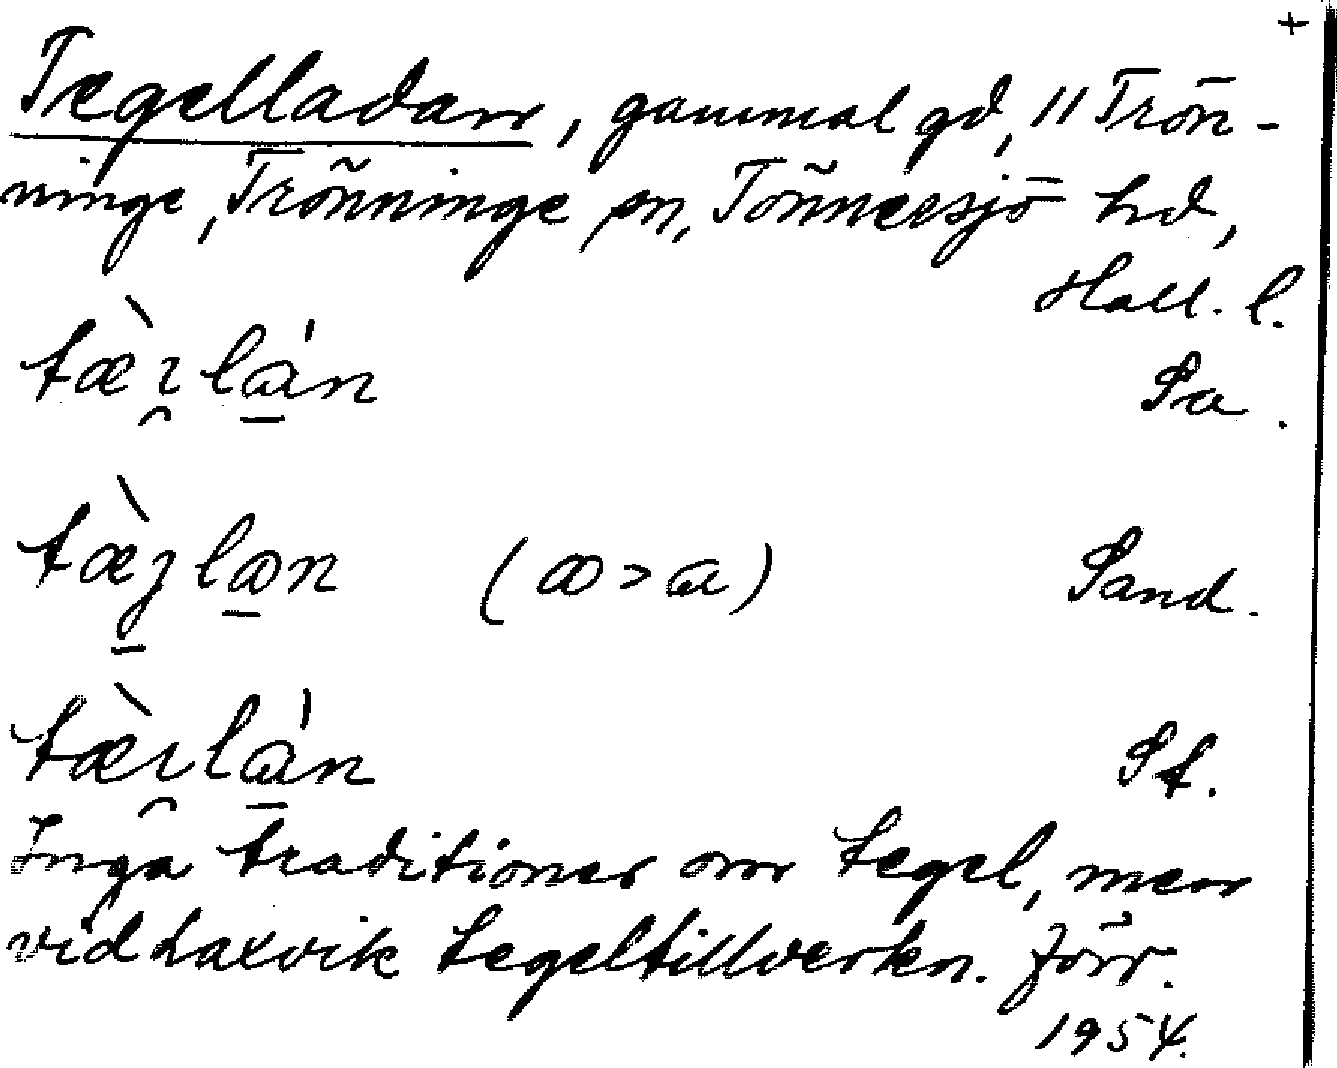 +
Tegelladan, gammal gd, 11 Trön-
ninge, Trönninge sn, Tönnersjö hd,
Hall. l.
tæ̀ɿlán Sa.
tæ̀ȝlan (ꝏ > a) Sand.
tæ̀ɿlán St.
Inga traditioner om tegel, men
vid Laxvik tegeltillverkn. förr.
1954.